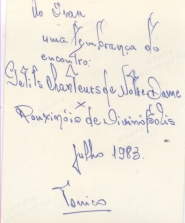 Ao Jean
uma lembrança do
encontro:
Petits Chanteurs de Notre Dame
x
Rouxinóis de Divinópolis
Julho 1983.